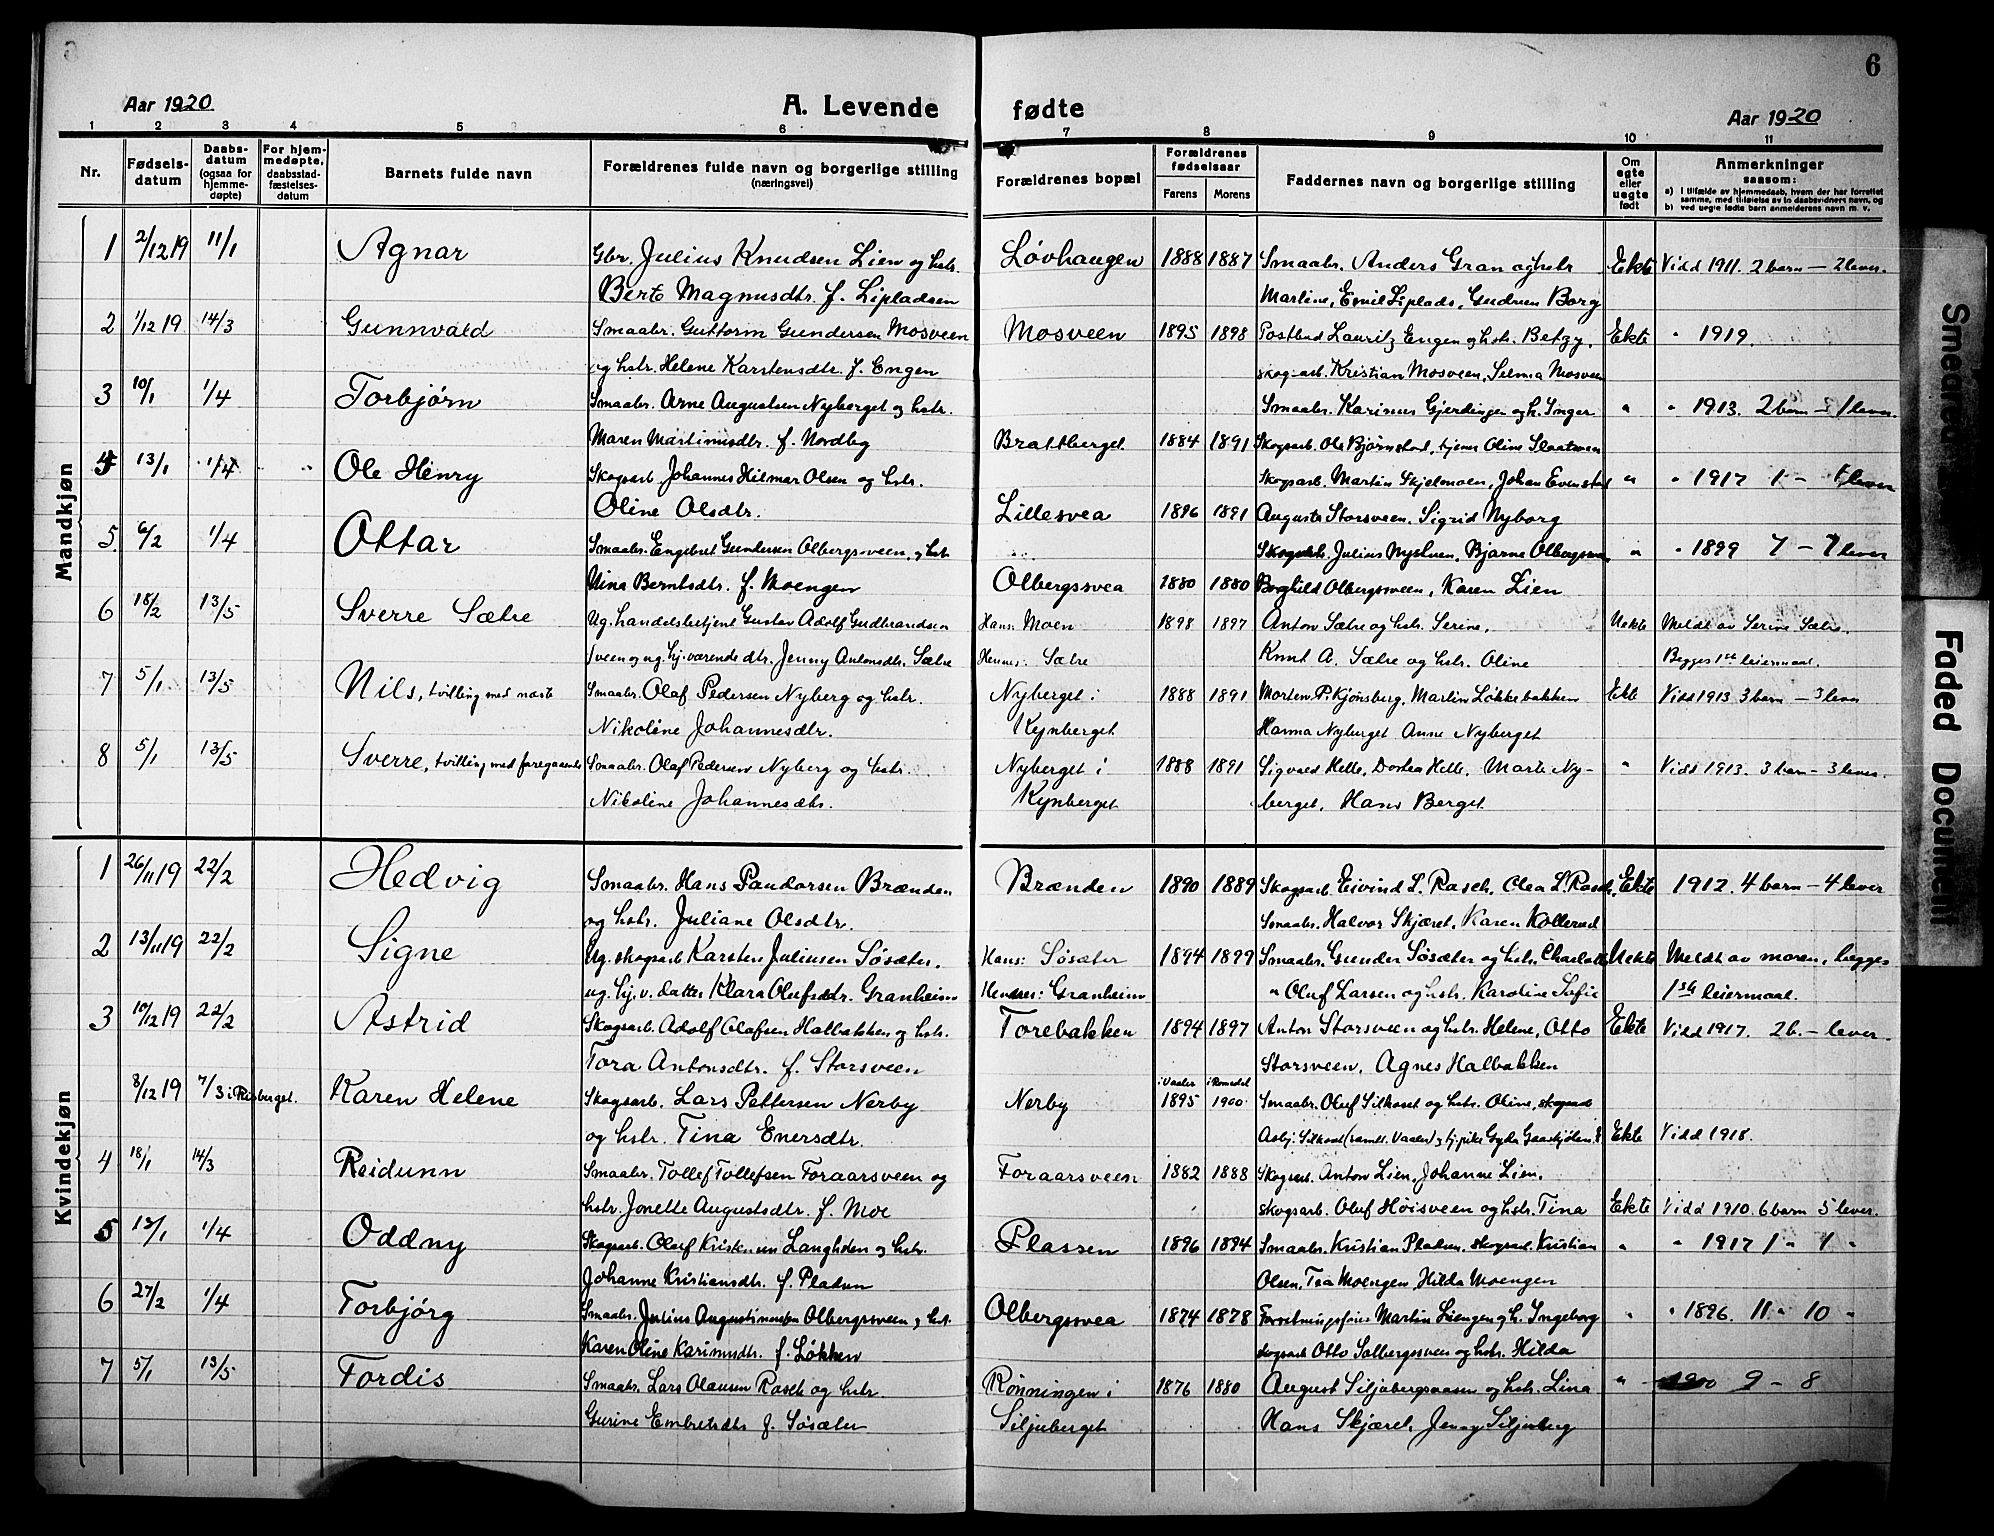 6
Aar 1920 A. Levende fødte Aar 1920
1 2 3 4 5 6 7 8 9 10 11
Nr. Fødsels-datum Daabs-datum (ogsaa for hjemme-døpte) For hjem-medøpte, daabsstad-fæstelses-datum Barnets fulde navn Forældrenes fulde navn og borgerlige stilling (næringsvei) Forældrenes bopæl Forældrenes fødselsaar Farens Morens Faddernes navn og borgerlige stilling Om egte eller uegte født Anmerkninger saasom:
a) I tilfælde av hjemmedaab, hvem der har forrettet samme, med tilføielse av to daabsvidners navn, og
b) ved uegte fødte barn anmelderens navn m. v.
Mandkjøn
1 2/12 19 11/1 Agnar Gbr. Julius Knudsen Lien og hstr. Løvhaugen 1888 1887 Smaabr. Anders Gran og hstr Ekte Vidd 1911. 2 barn – 2 lever.
Berte Magnusdtr. f. Lipladsen Martine, Emil Liplads, Gudrun Borg
2 1/12 19 14/3 Gunnvald Smaabr. Guttorm Gundersen Mosveen Mosveen 1895 1898 Postbud Lauritz Engen og hstr. Betzy, Ekte " 1919.
og hstr. Helene Karstensdtr. f. Engen skog-arb. Kristian Mosveen, Selma Mosveen
3 10/1 1/4 Torbjørn Smaabr. Arne Augustsen Nyberget og hstr. Smaabr. Karinus Gjerdingen og h. Inger " " 1913. 2 barn – 1 lever.
Maren Martinusdtr. f. Nordby Bratberget 1884 1891 Skogsarb. Ole Bjørnstad, tjener Oline Slaatmoen
4 13/1 1/4 Ole Henry Skogsarb. Johannes Hilmar Olsen og hstr. Skogsarb. Martin Skjelmoen, Johan Evenstad " " 1917 1 – 1 lever
Oline Olsdtr. Lillesvea 1896 1891 Augusta Storsveen, Sigrid Nyborg
5 6/2 1/4 Ottar Smaabr. Engebret Gundersen Olbergsveen, og hstr. Julius Bjarne Olbergsveen " " 1899 7 – 7 lever
Nina Berntsdtr. f. Moengen Olbergssvea 1880 1880 Borghild Olbergsveen, Karen Lien
6 18/2 13/5 Sverre Sætre Ug. handelsbetjent Gustav Adolf Gudbrandsen Hans: Moen 1898 1897 Anton Sætre og hstr. Serine, Uekte Meldt av Serine Sætre.
Sveen og ug. hj. værende dtr. Jenny Antonsdtr. Sætre Hennes: Sætre Knut A. Sætre og hstr. Oline Begges 1ste leiermaal.
7 5/1 13/5 Nils, tvilling med næste Smaabr. Olaf Pedersen Nyberg og hstr. Nyberget i 1888 1891 Morten P. Kjønsberg, Martin Løkkebakken Ekte Vidd 1913 3 barn – 3 lever
Nikoline Johannesdtr. Kynberget Hanna Nyberget Anne Nyberget
8 5/1 13/5 Sverre, tvilling med foregaaende Smaabr. Olaf Pedersen Nyberg og hstr. Nyberget i 1888 1891 Sigvald Helle, Dorthea Helle, Marte Ny- " Vidd 1913. 3 barn – 3 lever.
Nikoline Johannesdtr. Kynberget berget, Hans Berget
Kvindekjøn
1 26/11 19 22/2 Hedvig Smaabr. Hans Paudorsen Brænden Brænden 1890 1889 Skogsarb. Eivind L. Rasch, Olea L. Rasch, Ekte 1912. 4 barn – 4 lever
og hstr. Juliane Olsdtr. Smaabr. Halvor Skjæret, Karen Kollerud
2 13/11 19 22/2 Signe Ug. skogsarb Karsten Juliussen Søsæter, Hans: Søsæter 1894 1899 Smaabr. Gunder Søsæter og hstr. Charlotte Uekte Meldt av moren, begges
ug. hj. v. datter Klara Olufsdtr. Granheim Hennes: Granheim " Oluf Larsen og hstr. Karoline Sofie 1ste leiermaal.
3 10/12 19 22/2 Astrid Skogsarb. Adolf Olafsen Halbakken og hstr. Torebakken 1894 1897 Anton Storsveen og hstr. Helene, Otto Ekte Vidd 1917. 2 b. – lever.
Tora Antonsdtr. f. Storsveen Storsveen, Agnes Halbakken
8/12 19 7/3 i Risberget. Karen Helene Skogsarb. Lars Pettersen Nerby Nerby i Vaaler 1895 i Romedal 1900 Smaabr. Oluf Silkoset og hstr. Oline, skogsarb
og hstr. Tina Enersdtr. Asbj. Silkoset (samtl. Vaaler) og tj.pike Gyda Ekte Vidd 1918.
4 18/1 14/3 Reidunn Smaabr. Tollef Tollefsen Foraarsveen og Foraarsveen 1882 1888 Skogsarb. Anton Lien, Johanne Lien,
hstr. Jonette Augustsdtr. f. Moe skogsarb. Oluf Høisveen og hstr. Tina Ekte Vidd 1910. 6 barn 5 lever.
5 13/1 1/4 Oddny Skogsarb. Oluf Langholen og hstr. Plassen 1896 1894 Smaabr. Kristian Pladsen, skogsarb. Kristian " " 1917 1 " 1 "
Johanne Kristiansdtr. f. Pladsen Olsen, Tea Moengen, Hilda Moengen
6 27/2 1/4 Torbjørg Smaabr. Julius Augustinussen Olbergsveen og hstr. Olbergssvea 1874 1878 Martin Liengen og h. Ingeborg " " 1896. 11 " 10 "
Karen Oline Karinusdtr. f. Løkken skogsarb Otto Solbergsveen og hstr. Hilda
7 5/1 13/5 Tordis Smaabr. Lars Olausen Rasch og hstr. Rønningen i 1876 1880 August Siljubergsaasen og hstr. Lina " 1900 9 – 8
Gurine Embretsdtr f. Søsæter Siljuberget Hans Skjæret, Jenny Siljuberg
Smeared
Faded Document